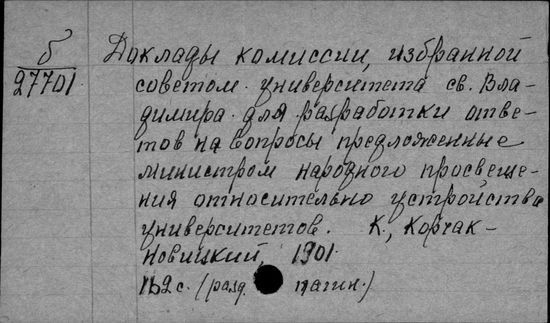 б
27701
Доклады комиссии, избранной
советом университета св. Вла-
димира для разработки отве-
тов на вопросы предложенные
министром народного просвеще-
ния относительно устройства
университетов. К., Корчак-
Новицкий, 1901.
с. (разд. пагин.)